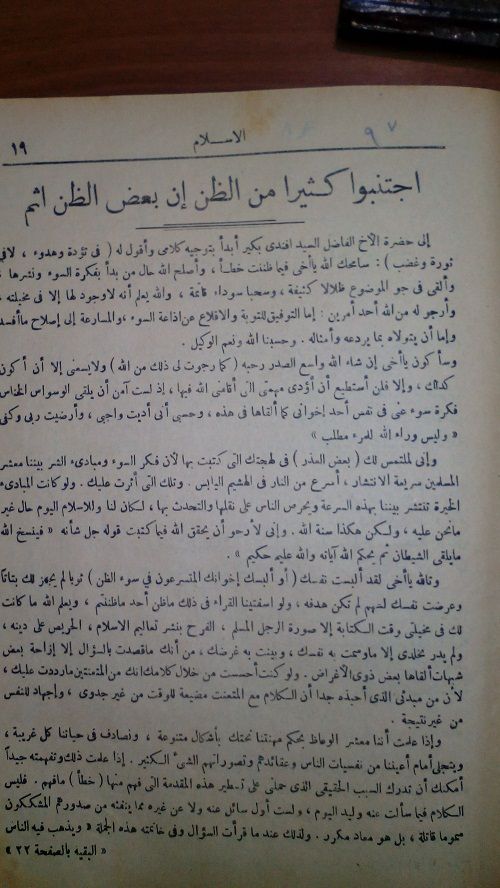 ١٩
الاسلام
٩٧
اجتنبوا كثيرا من الظن إن بعض الظن اثم
إلى حضرة الأخ الفاضل السيد افندى بكير أبدأ بتوجيه كلامى وأقول له ( فى تؤدة وهدوء ، لافى
ثورة وغضب ) : سامحك الله ياأخى فيما ظننت خطأ ، وأصلح الله حال من بدأ بفكرة السوء ونشرها ،
وألقى فى جو الموضوع ظلالا كثيفة ، وسحبا سوداء قائمة ، والله يعلم أنه لاوجود لها إلا فى مخيلته ،
وأرجو له من الله أحد أمرين : إما التوفيق للتوبة والاقلاع عن اذاعة السوء ، والمسارعة إلى إصلاح ماأفسد
وإما أن يتولاه بما يردعه وأمثاله . وحسبنا الله ونعم الوكيل .
وسأكون ياأخى إن شاء الله واسع الصدر رحبه ( كما رجوت لى ذلك من الله ) ولايسعنى إلا أن أكون
كذلك ، وإلا فلن أستطيع أن أؤدى مهمتى التى أتقاضى الله فيها ، إذ لست آمن أن يلقى الوسواس الخناس
فكرة سوء عنى فى نفس أحد إخوانى كما ألقاها فى هذه ، وحسبى أنى أديت واجبى ، وأرضيت ربى وكفى
« وليس وراء الله للمرء مطلب »
وإنى لملتمس لك ( بعض العذر ) فى لهجتك التى كتبت بها لأن فكر السوء ومبادىء الشر بيننا معشر
المسلمين سريعة الانتشار ، أسرع من النار فى الهشيم اليابس . وتلك التى أثرت عليك . ولو كانت المبادىء
الخيرة تنتشر بيننا بهذه السرعة ويحرص الناس على نقلها والتحدث بها ، لكان لنا وللاسلام اليوم حال غير
مانحن عليه ، ولكن هكذا سنة الله . وإنى لأرجو أن يحقق الله فيما كتبت قوله جل شأنه « فينسخ الله
مايلقى الشيطان ثم يحكم الله آياته والله عليم حكيم » .
وتالله ياأخى لقد ألبست نفسك ( أو ألبسك إخوانك المتسرعون فى سوء الظن ) ثوبا لم يجهز لك بتاتا
وعرضت نفسك لسهم لم تكن هدفه ، ولو استفتينا القراء فى ذلك ماظن أحد ماظننتم ، ويعلم الله ما كانت
لك فى مخيلتى وقت الكتابة إلا صورة الرجل المسلم ، الفرح بنشر تعاليم الاسلام ، الحريص على دينه ،
ولم يدر بخلدى إلا ماوسمت به نفسك ، وبينت به غرضك ، من أنك ماقصدت بالسؤال إلا إزاحة بعض
شبهات ألقاها بعض ذوى الأغراض . ولو كنت أحسست من خلال كلامك انك من المتعنتين مارددت عليك ،
لأن من مبدئى الذى أحبذه جدا أن الكلام مع المتعنت مضيعة للوقت من غير جدوى ، وإجهاد للنفس
من غير نتيجة .
وإذا علمت أننا معشر الوعاظ بحكم مهنتنا نحتك بأشكال متنوعة ، ونصادف فى حياتنا كل غريبة ،
ويتجلى أمام أعيننا من نفسيات الناس وعقائدهم وتصوراتهم الشىء الكثير . إذا علمت ذلك وتفهمته جيداً
أمكنك أن تدرك السبب الحقيقى الذى حملنى على تسطير هذه المقدمة التى فهم منها ( خطأ ) مافهم . فليس
الكلام فيما سألت عنه وليد اليوم ، ولست أول سائل عنه ولا عن غيره مما ينفثه من صدورهم المشككون
سموما قاتلة ، بل هو معاد مكرر . ولذلك عند ما قرأت السؤال وفى خاتمته هذه الجملة « ويذهب فيه الناس
« البقيه بالصفحة ٢٢ »